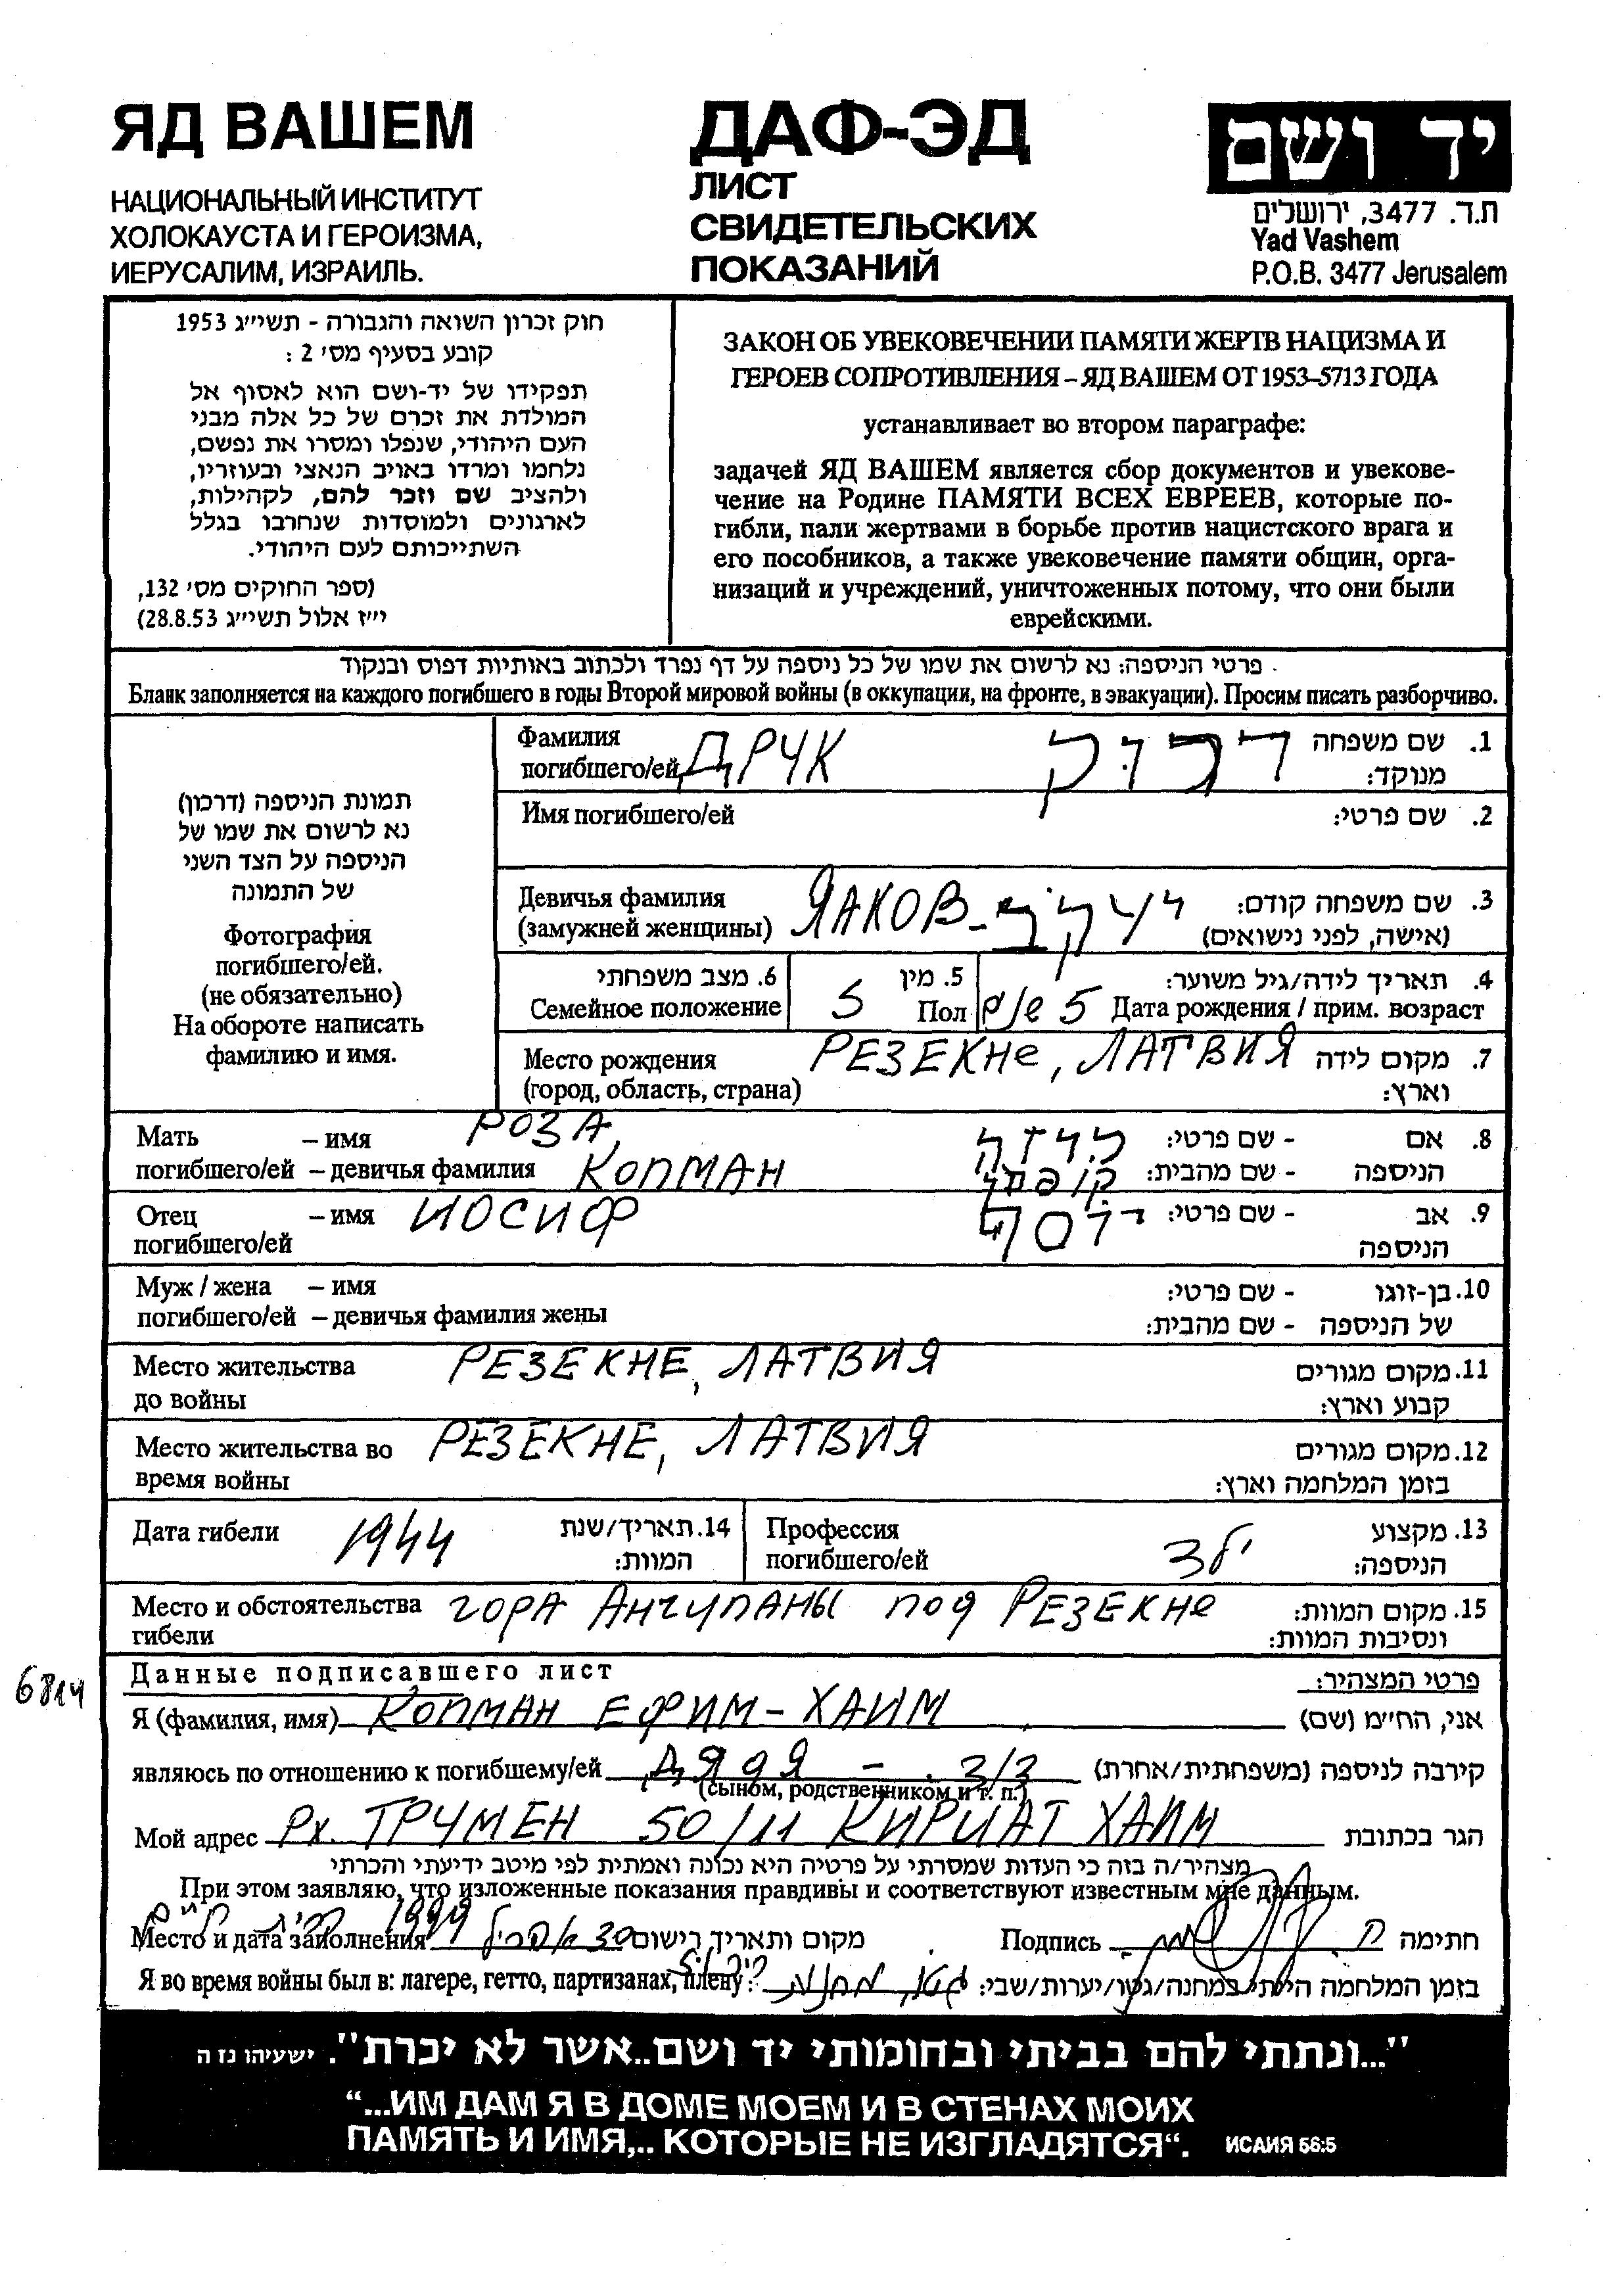 ЯД ВАШЕМ
НАЦИОНАЛЬНЫЙ ИНСТИТУТ
ХОЛОКАУСТА И ГЕРОИЗМА,
ИЕРУСАЛИМ, ИЗРАИЛЬ.
ДАФ-ЭД
ЛИСТ
СВИДЕТЕЛЬСКИХ
ПОКАЗАНИЙ
יד ושם
ת.ד. 3477, ירושלים
Yad Vashem
P.O.B. 3477 Jerusalem
חוק זכרון השואה והגבורה - תשי״ג 1953
קובע בסעיף מס׳ 2 :
תפקידו של יד-ושם הוא לאסוף אל
המולדת את זכרם של כל אלה מבני
העם היהודי, שנפלו ומסרו את נפשם,
נלחמו ומרדו באויב הנאצי ובעוזריו,
ולהציב שם וזכר להם, לקהילות,
לארגונים ולמוסדות שנחרבו בגלל
השתייכותם לעם היהודי.
(ספר החוקים מס׳ 132,
י״ז אלול תשי״ג 28.8.53)
ЗАКОН ОБ УВЕКОВЕЧЕНИИ ПАМЯТИ ЖЕРТВ НАЦИЗМА И
ГЕРОЕВ СОПРОТИВЛЕНИЯ – ЯД ВАШЕМ ОТ 1953–5713 ГОДА
устанавливает во втором параграфе:
задачей ЯД ВАШЕМ является сбор документов и увекове-
чение на Родине ПАМЯТИ ВСЕХ ЕВРЕЕВ, которые по-
гибли, пали жертвами в борьбе против нацистского врага и
его пособников, а также увековечение памяти общин, орга-
низаций и учреждений, уничтоженных потому, что они были
еврейскими.
פרטי הניספה: נא לרשום את שמו של כל ניספה על דף נפרד ולכתוב באותיות דפוס ובנקוד .
Бланк заполняется на каждого погибшего в годы Второй мировой войны (в оккупации, на фронте, в эвакуации). Просим писать разборчиво.
תמונת הניספה (דרכון)
נא לרשום את שמו של
הניספה על הצד השני
של התמונה
Фотография
погибшего/ей.
(не обязательно)
На обороте написать
фамилию и имя.
Фамилия
погибшего/ей ДРУК
דרוק
1. שם משפחה
מנוקד:
Имя погибшего/ей
2. שם פרטי:
Девичья фамилия
(замужней женщины) ЯАКОВ - יעקב
3. שם משפחה קודם:
(אישה, לפני נישואים)
6. מצב משפחתי
Семейное положение
5. מין
Пол
ז
4. תאריך לידה/גיל משוער:
Дата рождения / прим. возраст 5 שנים
Место рождения
(город, область, страна) РЕЗЕКНе, ЛАТВИЯ
7. מקום לידה
וארץ:
Мать – имя РОЗА
погибшего/ей – девичья фамилия КОПМАН
8. אם - שם פרטי: רוזה
הניספה - שם מהבית: קופמן
Отец – имя ИОСИФ
погибшего/ей
9. אב - שם פרטי: יוסף
הניספה
Муж / жена – имя
погибшего/ей – девичья фамилия жены
10. בן-זוגו - שם פרטי:
של הניספה - שם מהבית:
Место жительства РЕЗЕКНЕ, ЛАТВИЯ
до войны
11. מקום מגורים
קבוע וארץ:
Место жительства во РЕЗЕКНЕ, ЛАТВИЯ
время войны
12. מקום מגורים
בזמן המלחמה וארץ:
Дата гибели 1944
14. תאריך/שנת
המוות:
Профессия
погибшего/ей
ילד
13. מקצוע
הניספה:
Место и обстоятельства гора Анчупаны под Резекне
гибели
15. מקום המוות:
ונסיבות המוות:
6814
Данные подписавшего лист
פרטי המצהיר:
Я (фамилия, имя) КОПМАН ЕФИМ-ХАИМ
אני, החי״מ (שם)
являюсь по отношению к погибшему/ей ДЯДЯ - דוד
(сыном, родственником и т. п.)
קירבה לניספה (משפחתית/אחרת)
Мой адрес Рх. ТРУМЕН 50/11 КИРИАТ ХАИМ
הגר בכתובת
מצהיר/ה בזה כי העדות שמסרתי על פרטיה היא נכונה ואמתית לפי מיטב ידיעתי והכרתי
При этом заявляю, что изложенные показания правдивы и соответствуют известным мне данным.
Место и дата заполнения 1999 אפריל
קרית חיים
מקום ותאריך רישום
Подпись
חתימה
Я во время войны был в: лагере, гетто, партизанах, плену?
גטו, מחנות
בזמן המלחמה הייתי במחנה/גטו/יערות/שבי:
"...ונתתי להם בביתי ובחומותי יד ושם..אשר לא יכרת". ישעיהו נז ה
“...ИМ ДАМ Я В ДОМЕ МОЕМ И В СТЕНАХ МОИХ
ПАМЯТЬ И ИМЯ,.. КОТОРЫЕ НЕ ИЗГЛАДЯТСЯ“. ИСАИЯ 56:5